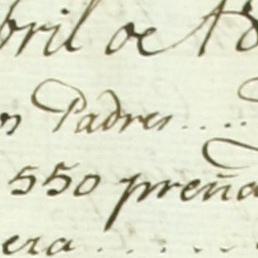 bril de 18
os Padres....
550 preña
era......